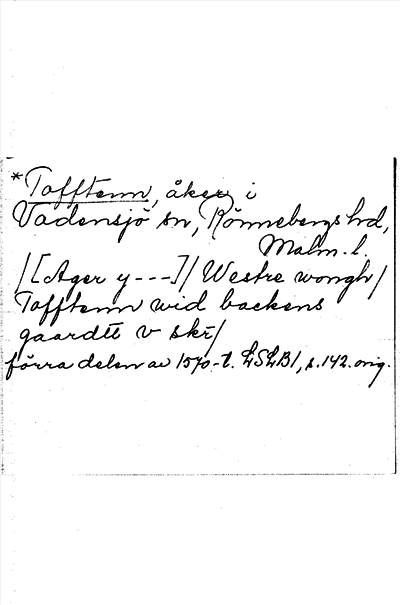 *Tofftenn, åker, i
Vadensjö sn, Rönnebergs hd,
Malm. l.
/[Ager y---]/ Westre wongh/
Tofftenn wid backens
gaardtt v skr̃/
förra delen av 1570-t. LSLB1, s.142. orig.